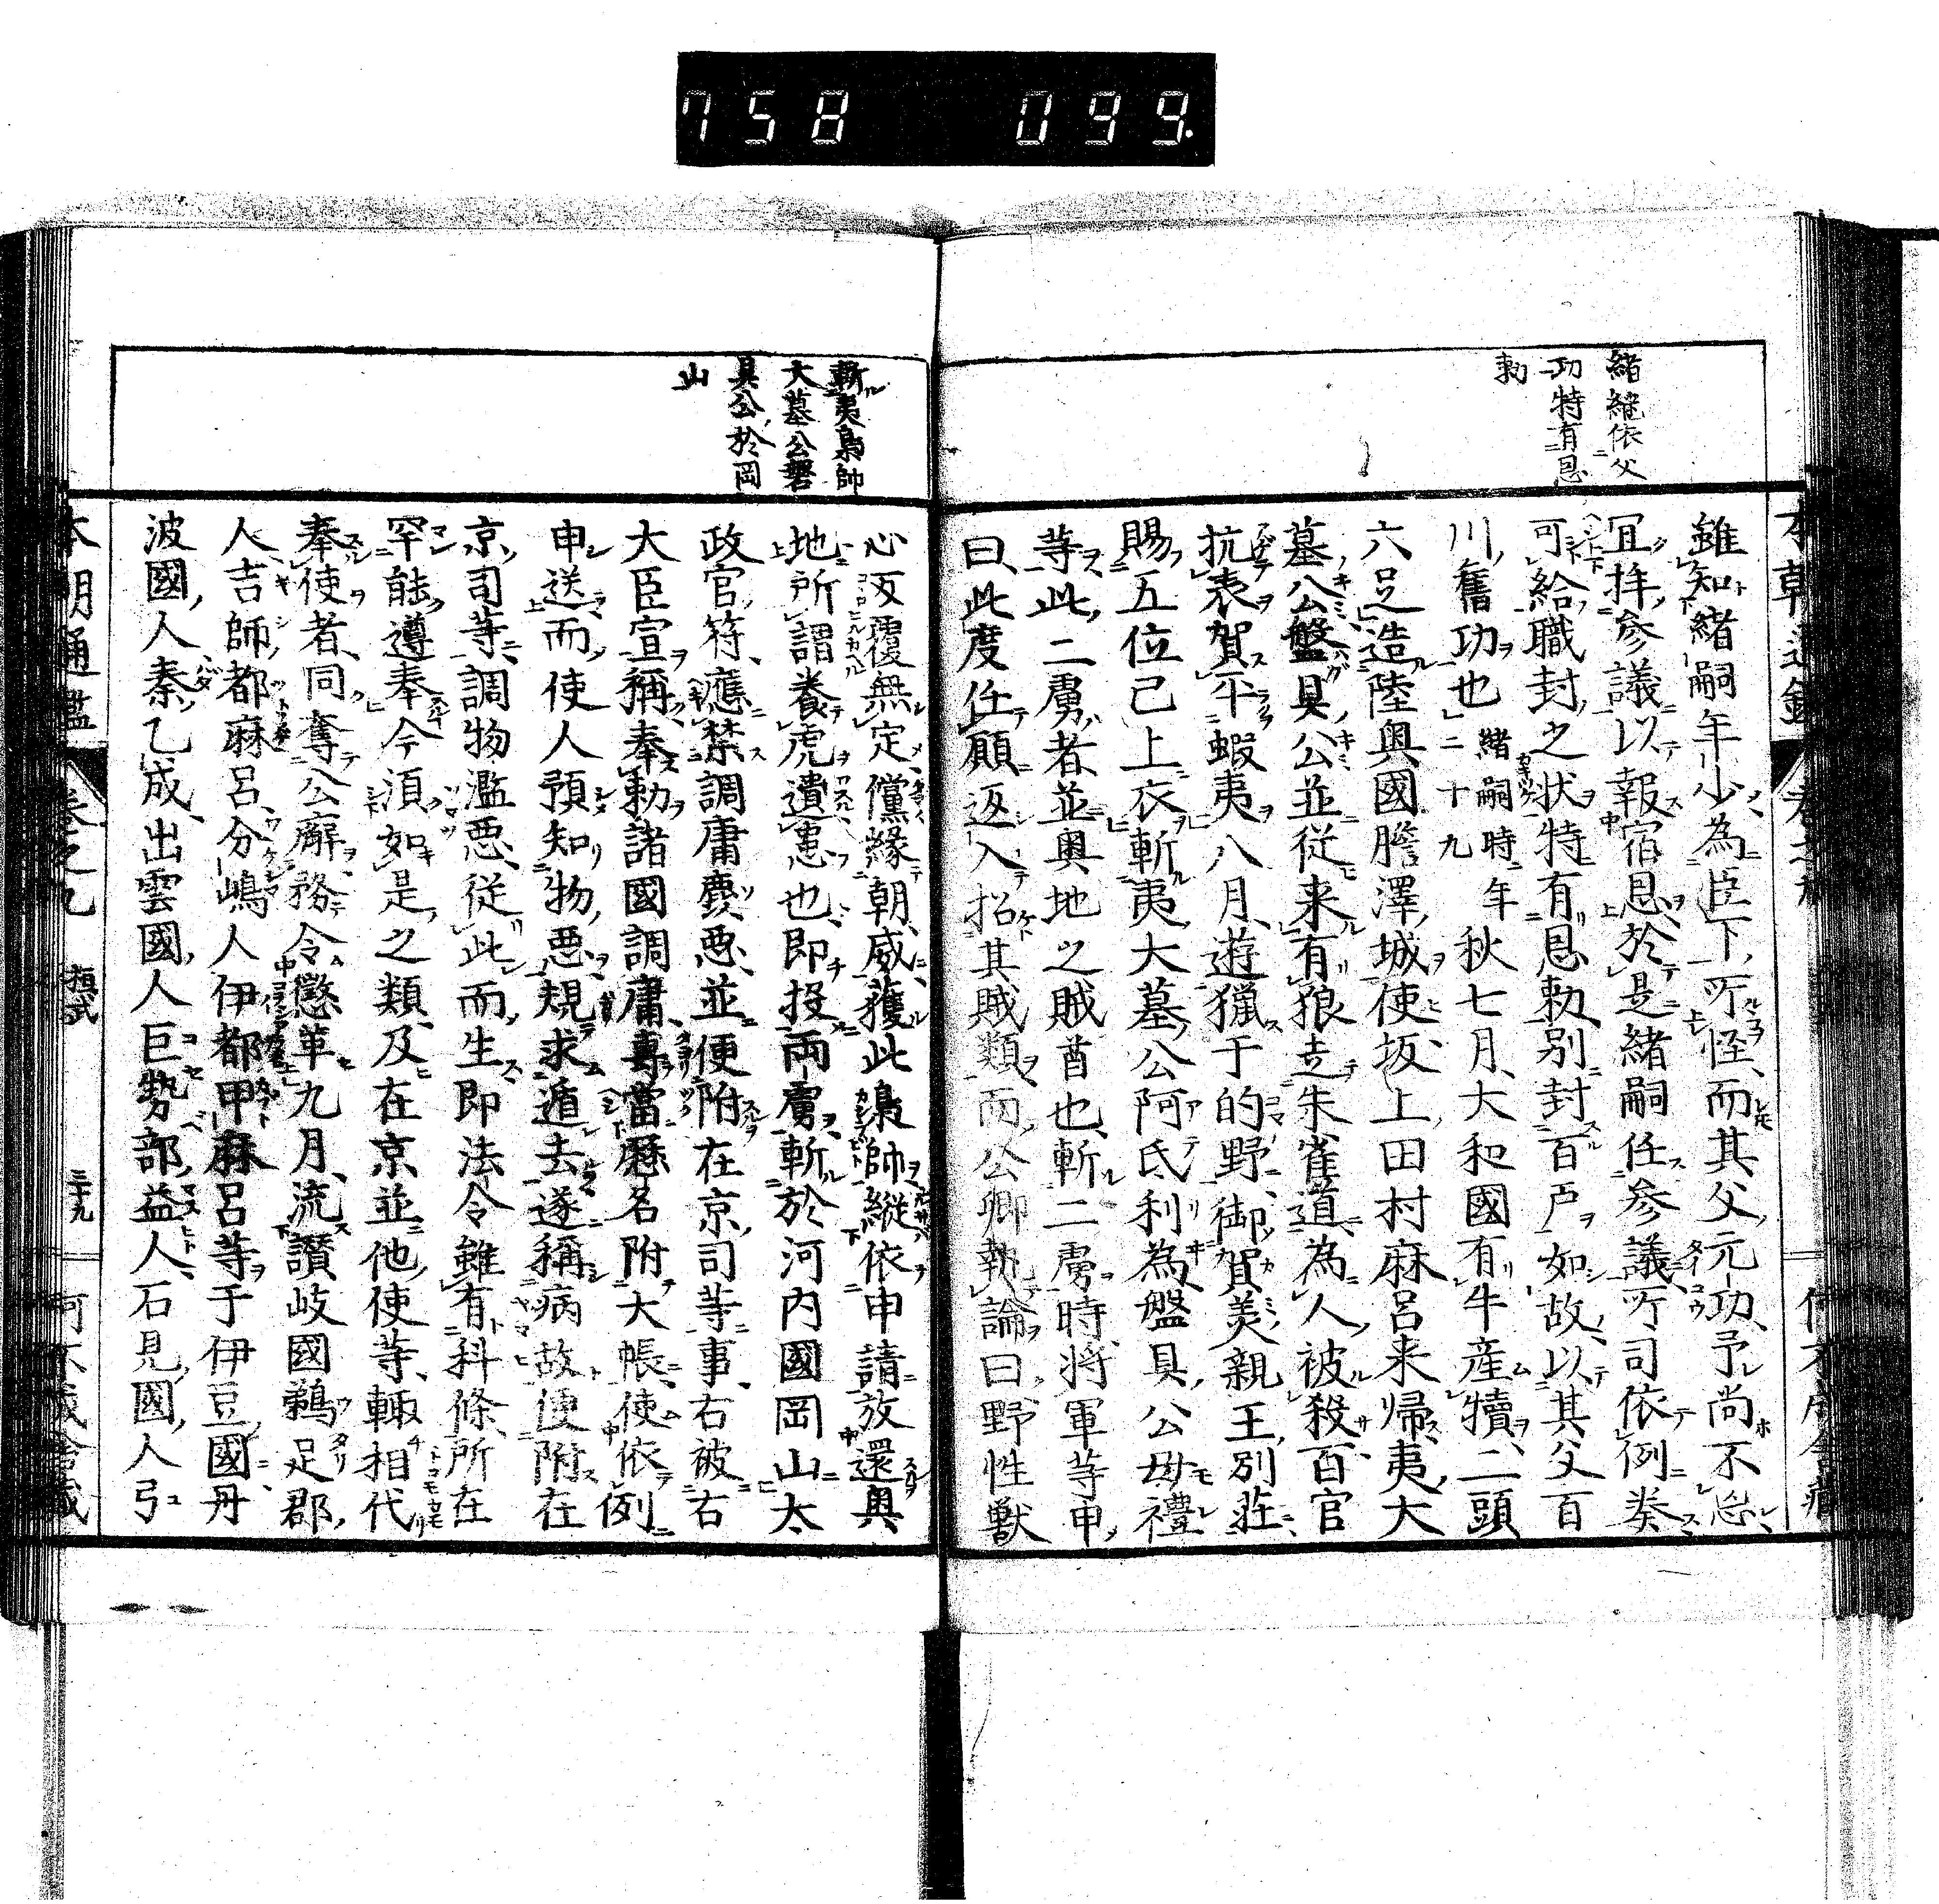 758 099.
緒継依父
功特有恩
勅
雖知緒嗣年少為臣下所怪而其父元功予尚不忘
宜拝参議以報宿恩於是緒嗣任参議所司依例奏
可給職封之状特有恩勅別封百戸如故以其父百
川舊功也緒嗣時年二十九秋七月大和國有牛産犢二頭
六足造陸奥國膽澤城使坂上田村麻呂来帰夷大
墓公盤具公並従来有狼走朱雀道為人被殺百官
抗表賀平蝦夷八月遊猟于的野御賀美親王別荘
賜五位已上衣斬夷大墓公阿氐利為盤具公母禮
等此二虜者並奥地之賊首也斬二虜時将軍等申
曰此度任願返入招其賊類而公卿執論曰野性獣
斬夷梟帥
大墓公磐
具公於岡
山
心反覆無定儻縁朝威獲此梟帥縦依申請放還奥
地所謂養虎遺患也即捉両虜斬於河内國岡山太
政官符應禁調庸麁悪並便附在京司等事右被右
大臣宣稱奉勅諸國調庸専當歴名附大帳使依例
申送而使人預知物悪規求遁去遂稱病故便附在
京司等調物濫悪従此而生即法令雖有科條所在
罕能遵奉今須如是之類及在京並他使等輙相代
奉使者同奪公廨務令懲革九月流讃岐國鵜足郡
人吉師都麻呂分嶋人伊都甲麻呂等于伊豆國丹
波國人秦乙成出雲國人巨勢部益人石見國人弓
本朝通鑑 巻之九 桓武 三十九